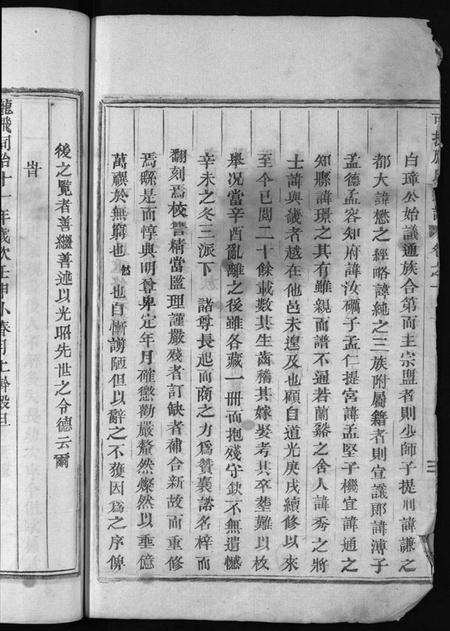 白璋公始議通族合第而主宗盟者則少師子提川諱謙之
都大諱懋之經略諱純之三族附屬籍者則宣讓郎諱溥子
孟德孟容知府諱汝礪子孟仁提宮諱孟堅子機宜諱通之
知縣諱璟之其有雖親而譜不通若蘭谿之舍人諱秀之將
士諱與畿者越在他邑未遑及也顧自道光庚戌續修以來
至今已閱二十餘載數其生齒稽其嫁娶考其卒塟難以枚
舉况當辛酉亂離之後雖各藏一冊而抱殘守缺不無遺憾
辛未之冬三派下 諸尊長起而商之力爲贊襄諸名梓而
翻刻焉校讐精當監理謹嚴殘者訂缺者補合新故而重修
焉縣是而惇典明尊卑定年月確懲勸嚴釐然燦然以垂億
萬禩於無窮也 也自慚謭陋但以辭之不獲因爲之序俾
後之覽者善繼善述以光昭先世之令德云爾
旹
龍飛同治十一年歲次壬申